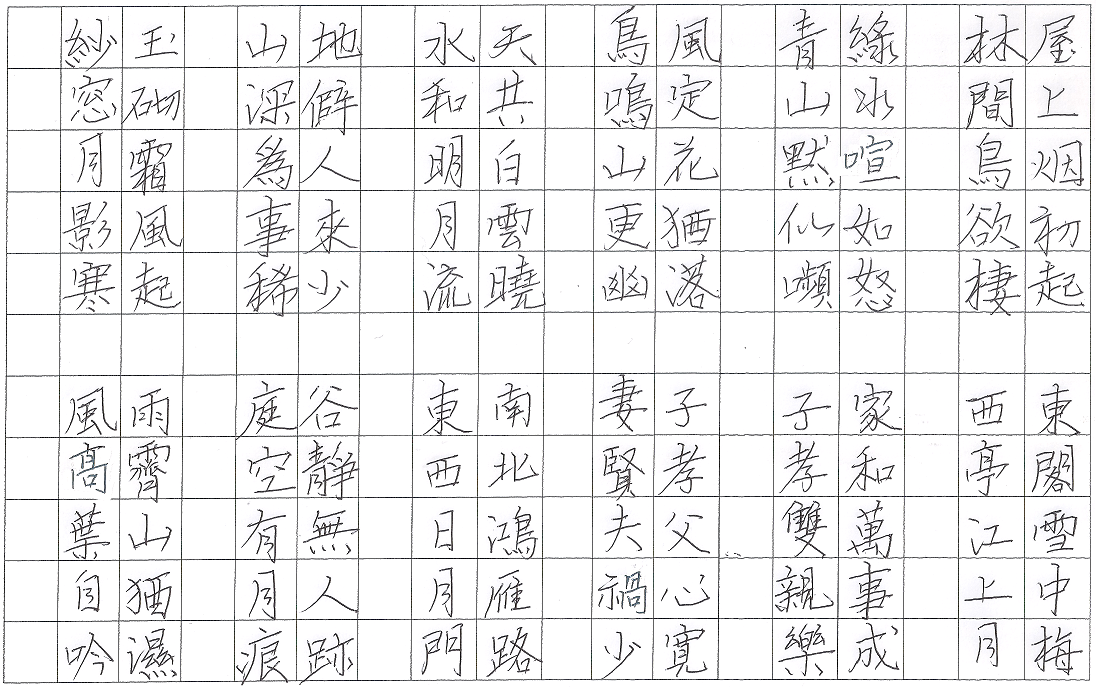 屋上烟初起
林間鳥欲棲
綠水喧如怒
青山默似嚬
風定花猶落
鳥鳴山更幽
天共白雲曉
水和明月流
地僻人來少
山深爲事稀
玉砌霜風起
紗窓月影寒
東閣雪中梅
西亭江上月
家和萬事成
子孝雙親樂
子孝父心寬
妻賢夫禍少
南北鴻雁路
東西日月門
谷靜無人跡
庭空有月痕
雨霽山猶濕
風高葉自吟